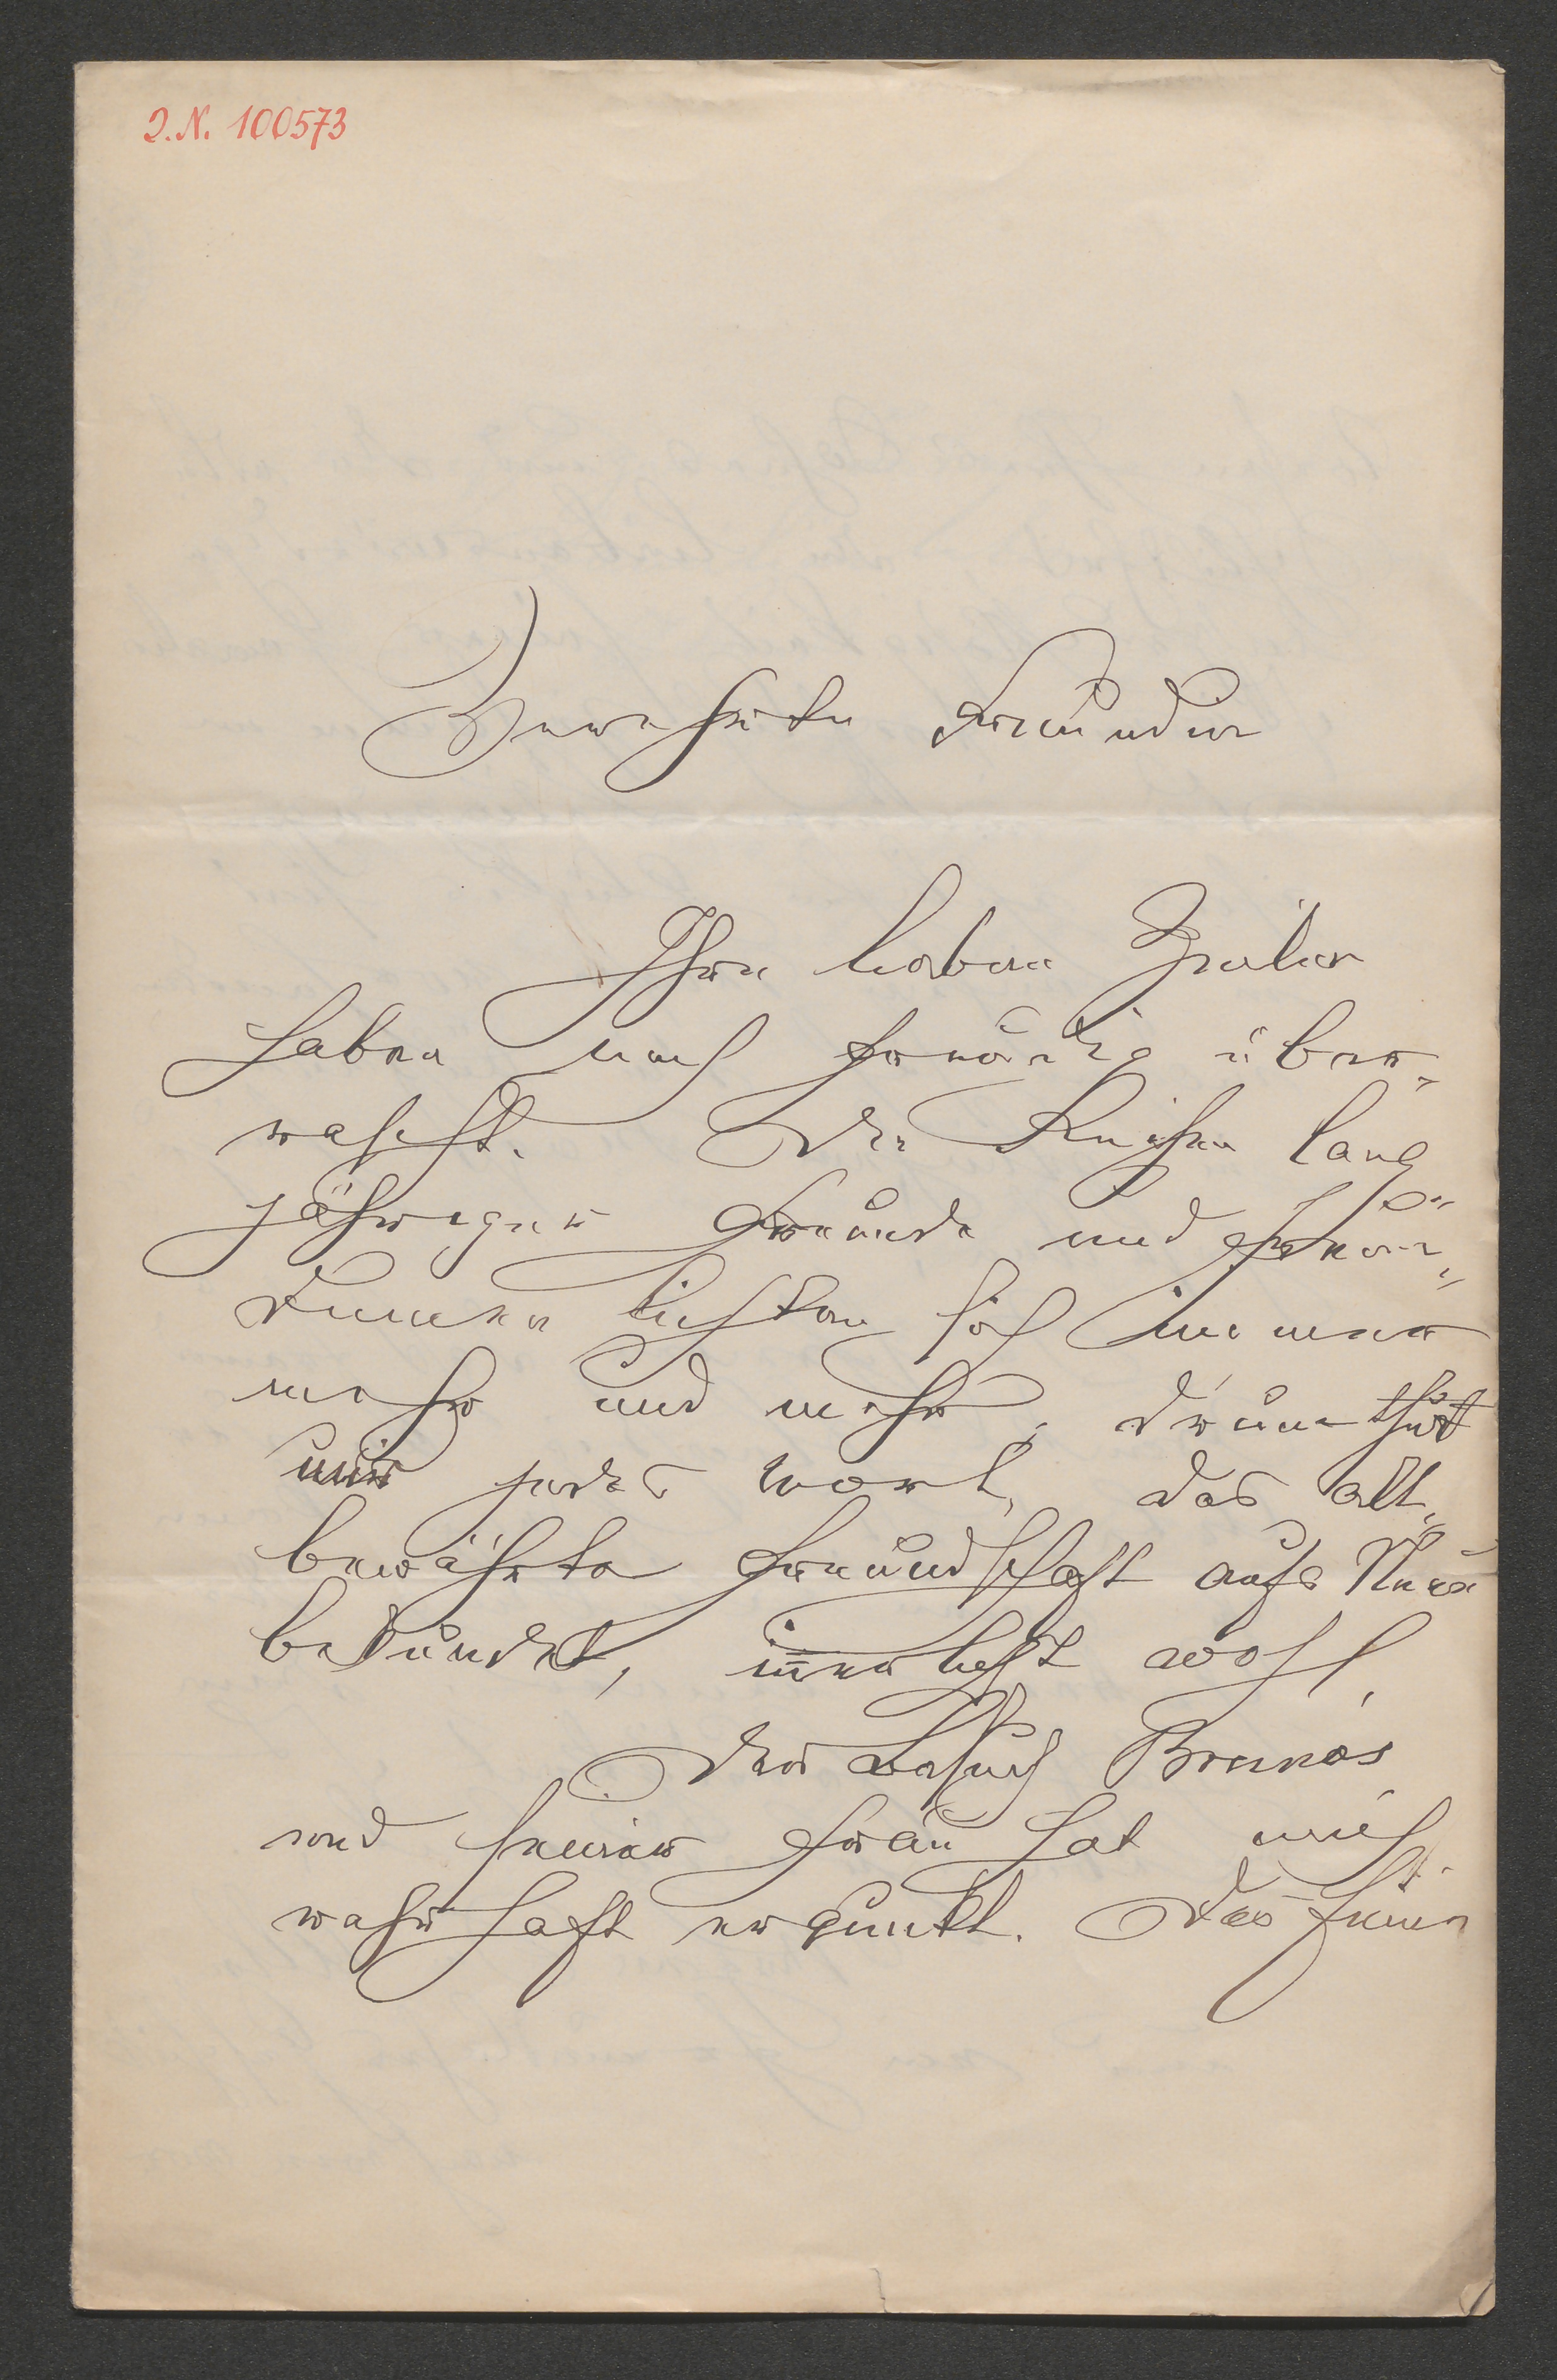 I.N. 100573
Verehrte Freundin
Ihre lieben Zeilen
haben mich freudig über-
rascht. Die Reihen lang
jähriger Freunde und Freun-
dinnen lichten sich immer
mehr und mehr, drum thut
mir jedes Wort, das alt-
bewährte Freundschaft aufs Neue
bekundet, innerlichst wohl,
Der Besuch Brunos
und seiner Frau hat mich
wahrhaft erquickt. Das sind